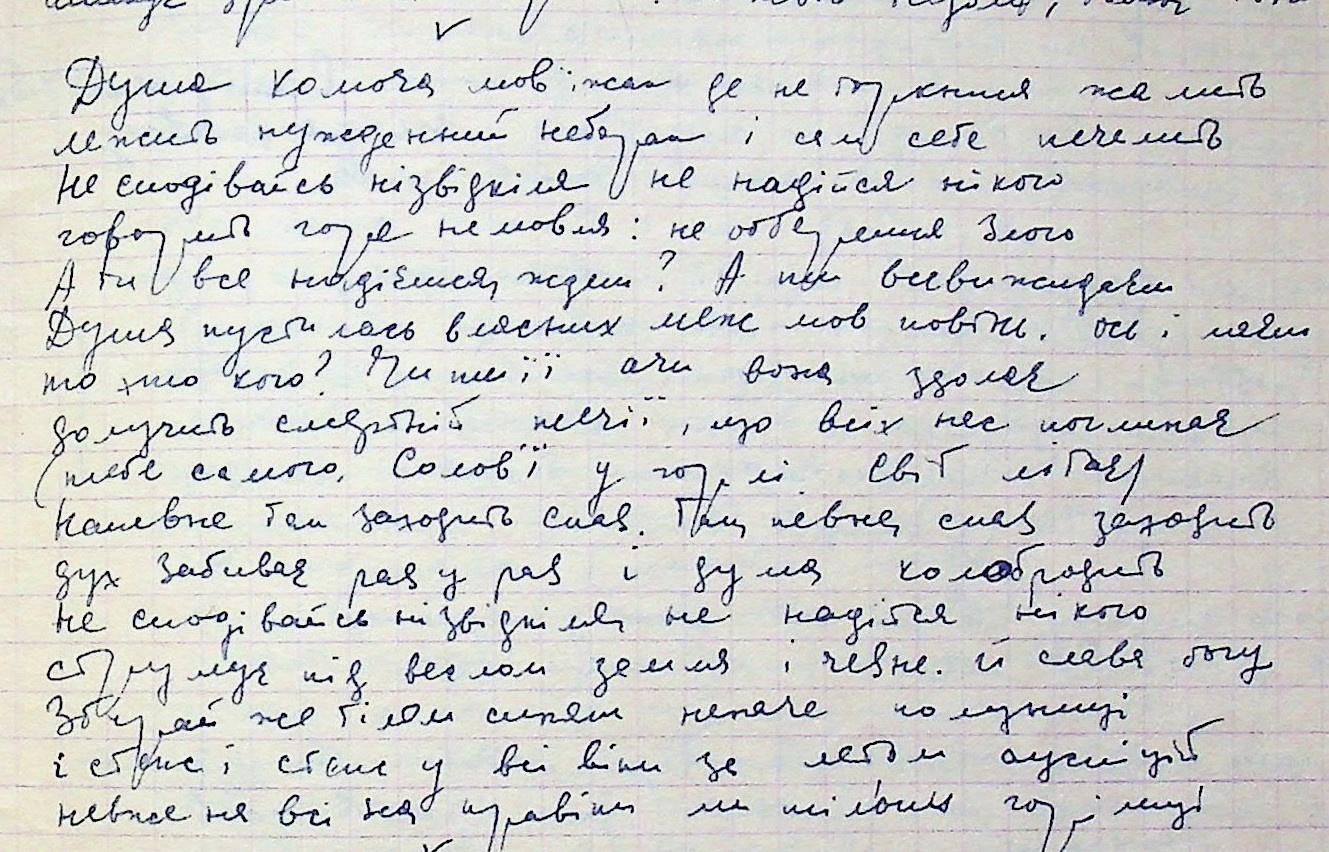 Душа холоча мов їжак де не торкнися жалить
лежить нужденний неборак і сам себе печалить
Не сподівайсь нізвідкіля не надійся нікого
говорить горя немовля: не оббери Злого
А ти все надієшся, ждеш? А ти все вижидаєш
Душа пустилась власних меж мов повінь. ось і маєш
то хто кого? Чи ти її а чи вона здолає
долучить смертній течії, що всіх нас поглинає
(тебе самого. Солов'ї у горлі. Світ літає)
Напевне там заходить спаз. Там, певне, спаз заходить
дух забиває раз у раз і дума колобродить
не сподівайсь нізвідкіля, не надійся нікого
струмує під веслом земля і човне. й слава богу
Збирай же тілом синяки неначе полуниці
і стенс і стенс у всі віки за летом ауспіцій
невже не всі на правіки ми тіллючі горілиці